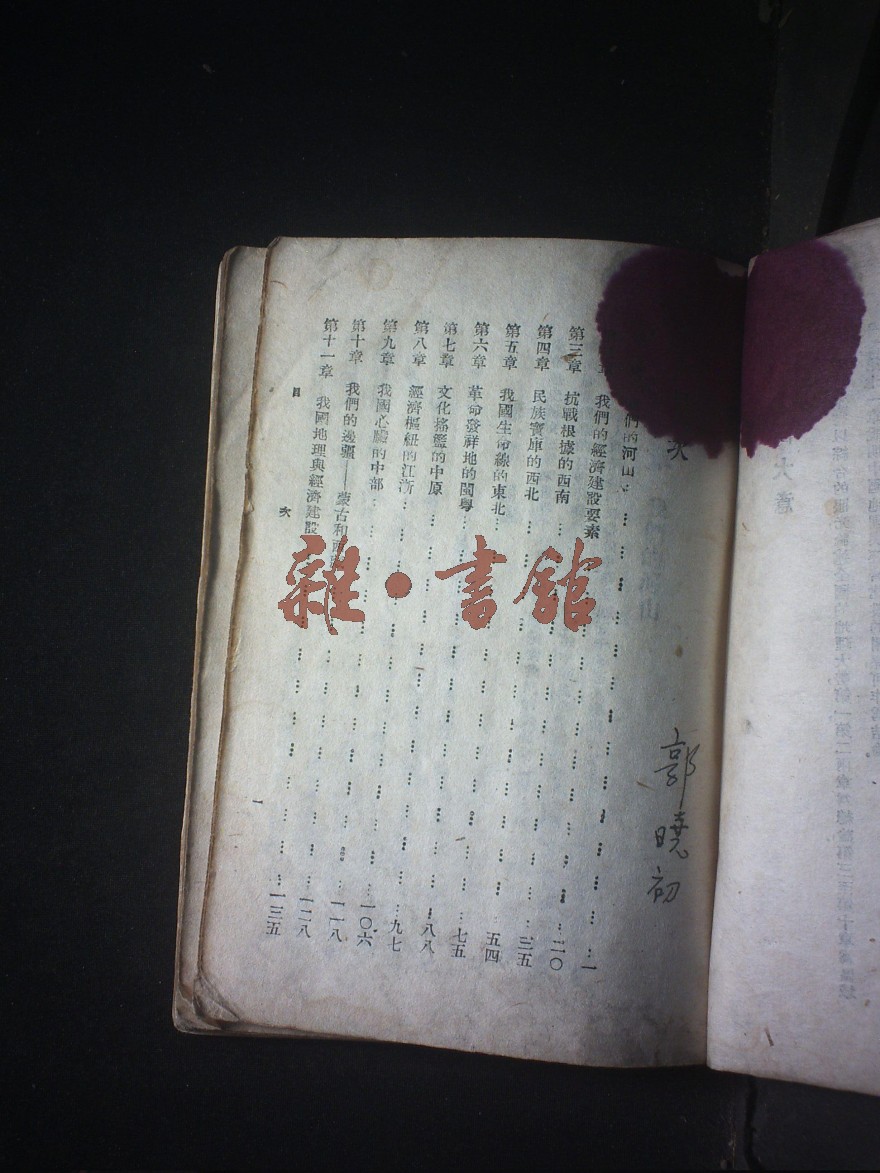 次
們的河山……一
章 我們的經濟建設要素……二〇
第三章 抗戰根據的西南……三五
第四章 民族寶庫的西北……五四
第五章 我國生命線的東北……七五
第六章 革命發祥地的閩粵……八八
第七章 文化搖籃的中原……九七
第八章 經濟樞紐的江浙……一〇六
第九章 我國心臟的中部……一一八
第十章 我們的邊疆——蒙古和西……一二八
第十一章 我國地理與經濟建設……一三五
目 次
一
郭曉初
雜·書館